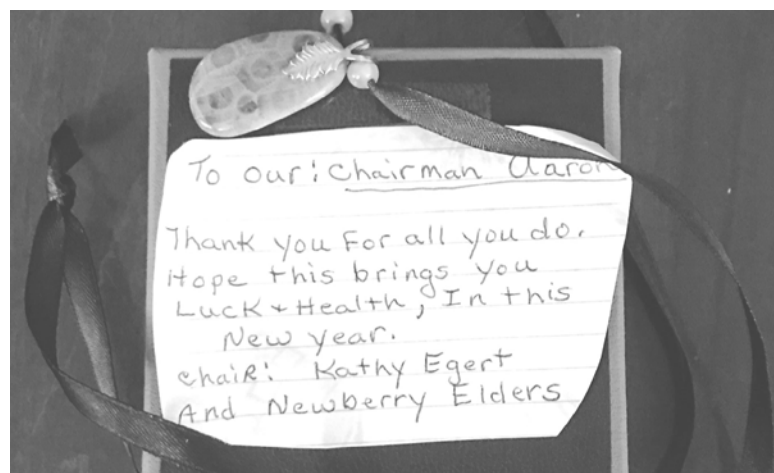 To our: Chairman Aaron
Thank you For all you do.
Hope this brings you
Luck + Health, In this
New year.
chaiR: Kathy Egert
And Newberry Elders